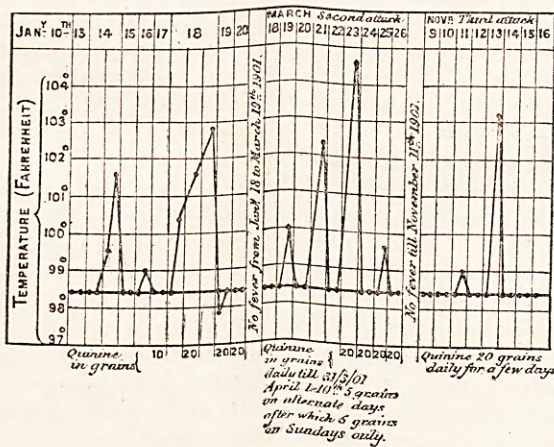 MARCH Second attack NOVR. Third attack
JANY. 10TH 13 14 15 16 17 18 19 20 18 19 20 21 22 23 24 25 26 9 10 11 12 13 14 15 16
TEMPERATURE (FAHRENHEIT)
104°
103°
102°
101°
100°
99°
98°
97°
No fever from Jany. 18 to March 19th 1901.
No fever till November 11th 1901.
Quinine in grains { 10 20 20 20
Quinine
in grains { 20 20 20 20
daily till 31/3/01
April 1-10th 5 grains
on alternate days
after which 5 grains
on Sundays only.
Quinine 20 grains
daily for a few days